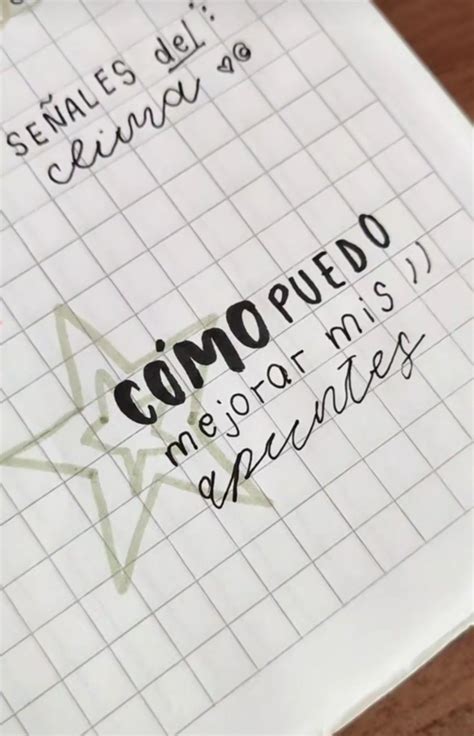 SEÑALES del:
clima
CÓMO PUEDO
mejorar mis
apuntes